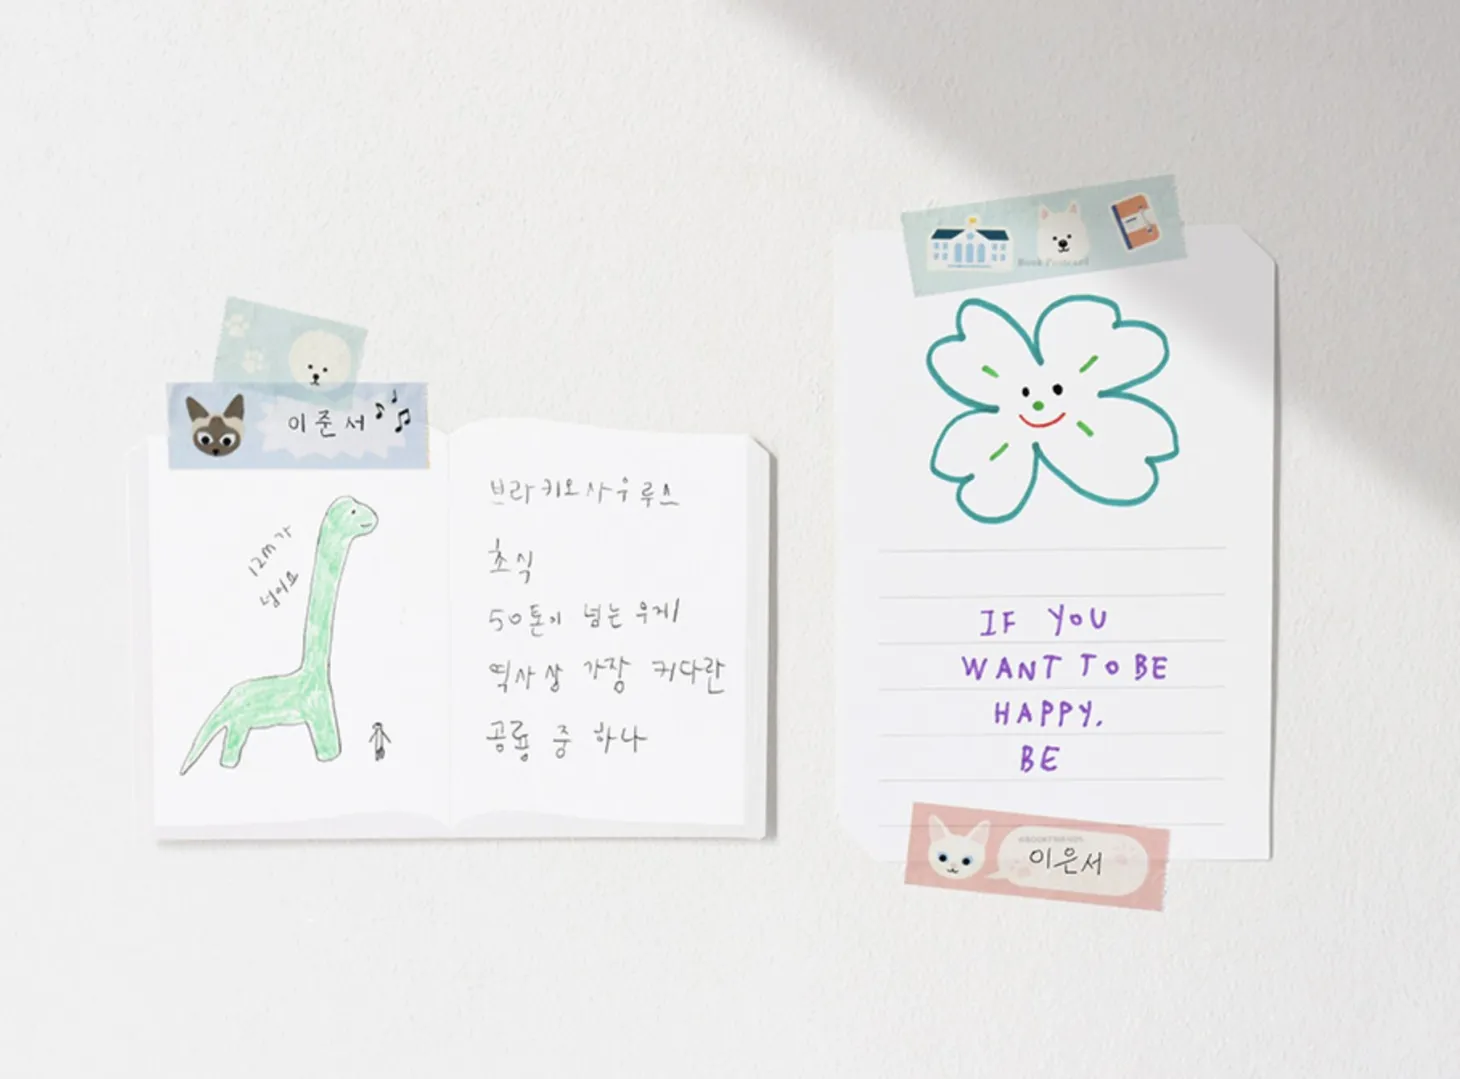 이준서
12m가
넘어요
브라키오사우루스
초식
50톤이 넘는 무게
역사상 가장 커다란
공룡 중 하나
Book Postcard
IF YOU
WANT TO BE
HAPPY.
BE
이은서